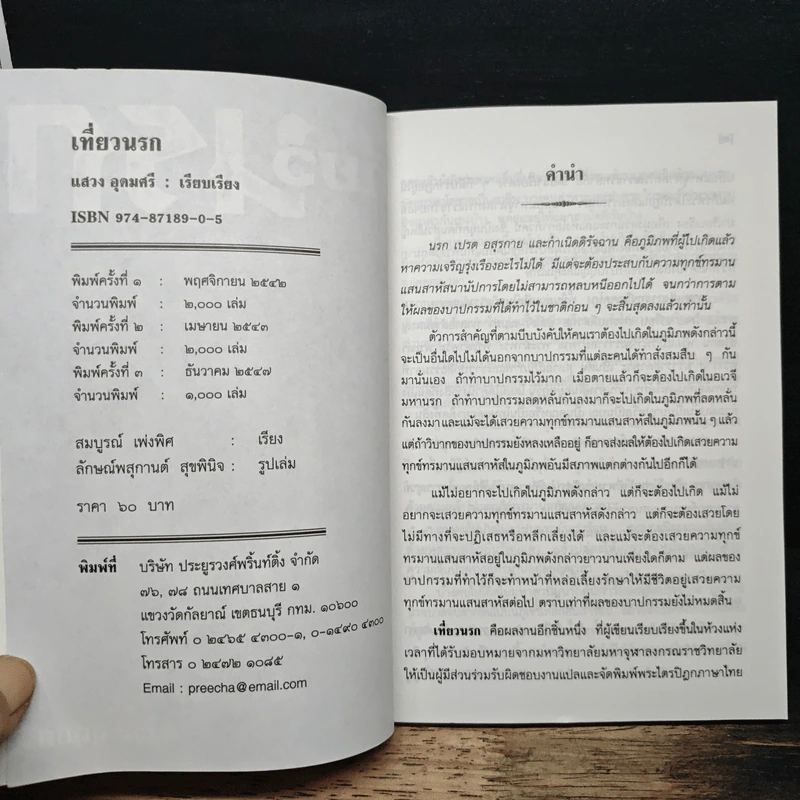 เที่ยวนรก
แสวง อุดมศรี : เรียบเรียง
ISBN 974-87189-0-5
พิมพ์ครั้งที่ ๑ : พฤศจิกายน ๒๕๔๒
จำนวนพิมพ์ : ๒,๐๐๐ เล่ม
พิมพ์ครั้งที่ ๒ : เมษายน ๒๕๔๓
จำนวนพิมพ์ : ๒,๐๐๐ เล่ม
พิมพ์ครั้งที่ ๓ : ธันวาคม ๒๕๔๗
จำนวนพิมพ์ : ๑,๐๐๐ เล่ม
สมบูรณ์ เพ่งพิศ : เรียง
ลักษณ์พสุกานต์ สุขพินิจ : รูปเล่ม
ราคา ๖๐ บาท
พิมพ์ที่ บริษัท ประยูรวงศ์พริ้นท์ติ้ง จำกัด
๗๖, ๗๘ ถนนเทศบาลสาย ๑
แขวงวัดกัลยาณ์ เขตธนบุรี กทม. ๑๐๖๐๐
โทรศัพท์ ๐ ๒๔๖๕ ๔๓๐๐-๑, ๐-๑๔๙๐ ๔๓๐๐
โทรสาร ๐ ๒๔๗๒ ๑๐๘๕
Email : preecha@email.com
คำนำ
นรก เปรต อสุรกาย และกำเนิดดิรัจฉาน คือภูมิภพที่ผู้ไปเกิดแล้ว
หาความเจริญรุ่งเรืองอะไรไม่ได้ มีแต่จะต้องประสบกับความทุกข์ทรมาน
แสนสาหัสนานัปการโดยไม่สามารถหลบหนีออกไปได้ จนกว่าการตาม
ให้ผลของบาปกรรมที่ได้ทำไว้ในชาติก่อน ๆ จะสิ้นสุดลงแล้วเท่านั้น
ตัวการสำคัญที่ตามบีบบังคับให้คนเราต้องไปเกิดในภูมิภพดังกล่าวนี้
จะเป็นอื่นใดไปไม่ได้นอกจากบาปกรรมที่แต่ละคนได้ทำสั่งสมสืบ ๆ กัน
มานั่นเอง ถ้าทำบาปกรรมไว้มาก เมื่อตายแล้วก็จะต้องไปเกิดในอเวจี
มหานรก ถ้าทำบาปกรรมลดหลั่นกันลงมาก็จะไปเกิดในภูมิภพที่ลดหลั่น
กันลงมา และแม้จะได้เสวยความทุกข์ทรมานแสนสาหัสในภูมิภพนั้น ๆ แล้ว
แต่ถ้าวิบากของบาปกรรมยังหลงเหลืออยู่ ก็อาจส่งผลให้ต้องไปเกิดเสวยความ
ทุกข์ทรมานแสนสาหัสในภูมิภพอันมีสภาพแตกต่างกันไปอีกก็ได้
แม้ไม่อยากจะไปเกิดในภูมิภพดังกล่าว แต่ก็จะต้องไปเกิด แม้ไม่
อยากจะเสวยความทุกข์ทรมานแสนสาหัสดังกล่าว แต่ก็จะต้องเสวยโดย
ไม่มีทางที่จะปฏิเสธหรือหลีกเลี่ยงได้ และแม้จะต้องเสวยความทุกข์
ทรมานแสนสาหัสอยู่ในภูมิภพดังกล่าวยาวนานเพียงใดก็ตาม แต่ผลของ
บาปกรรมที่ทำไว้ก็จะทำหน้าที่หล่อเลี้ยงรักษาให้มีชีวิตอยู่เสวยความ
ทุกข์ทรมานแสนสาหัสต่อไป ตราบเท่าที่ผลของบาปกรรมยังไม่หมดสิ้น
เที่ยวนรก คือผลงานอีกชิ้นหนึ่ง ที่ผู้เขียนเรียบเรียงขึ้นในห้วงแห่ง
เวลาที่ได้รับมอบหมายจากมหาวิทยาลัยมหาจุฬาลงกรณราชวิทยาลัย
ให้เป็นผู้มีส่วนร่วมรับผิดชอบงานแปลและจัดพิมพ์พระไตรปิฎกภาษาไทย